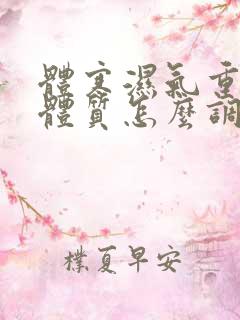 體寒濕氣重
體質怎麼調
樸夏早安